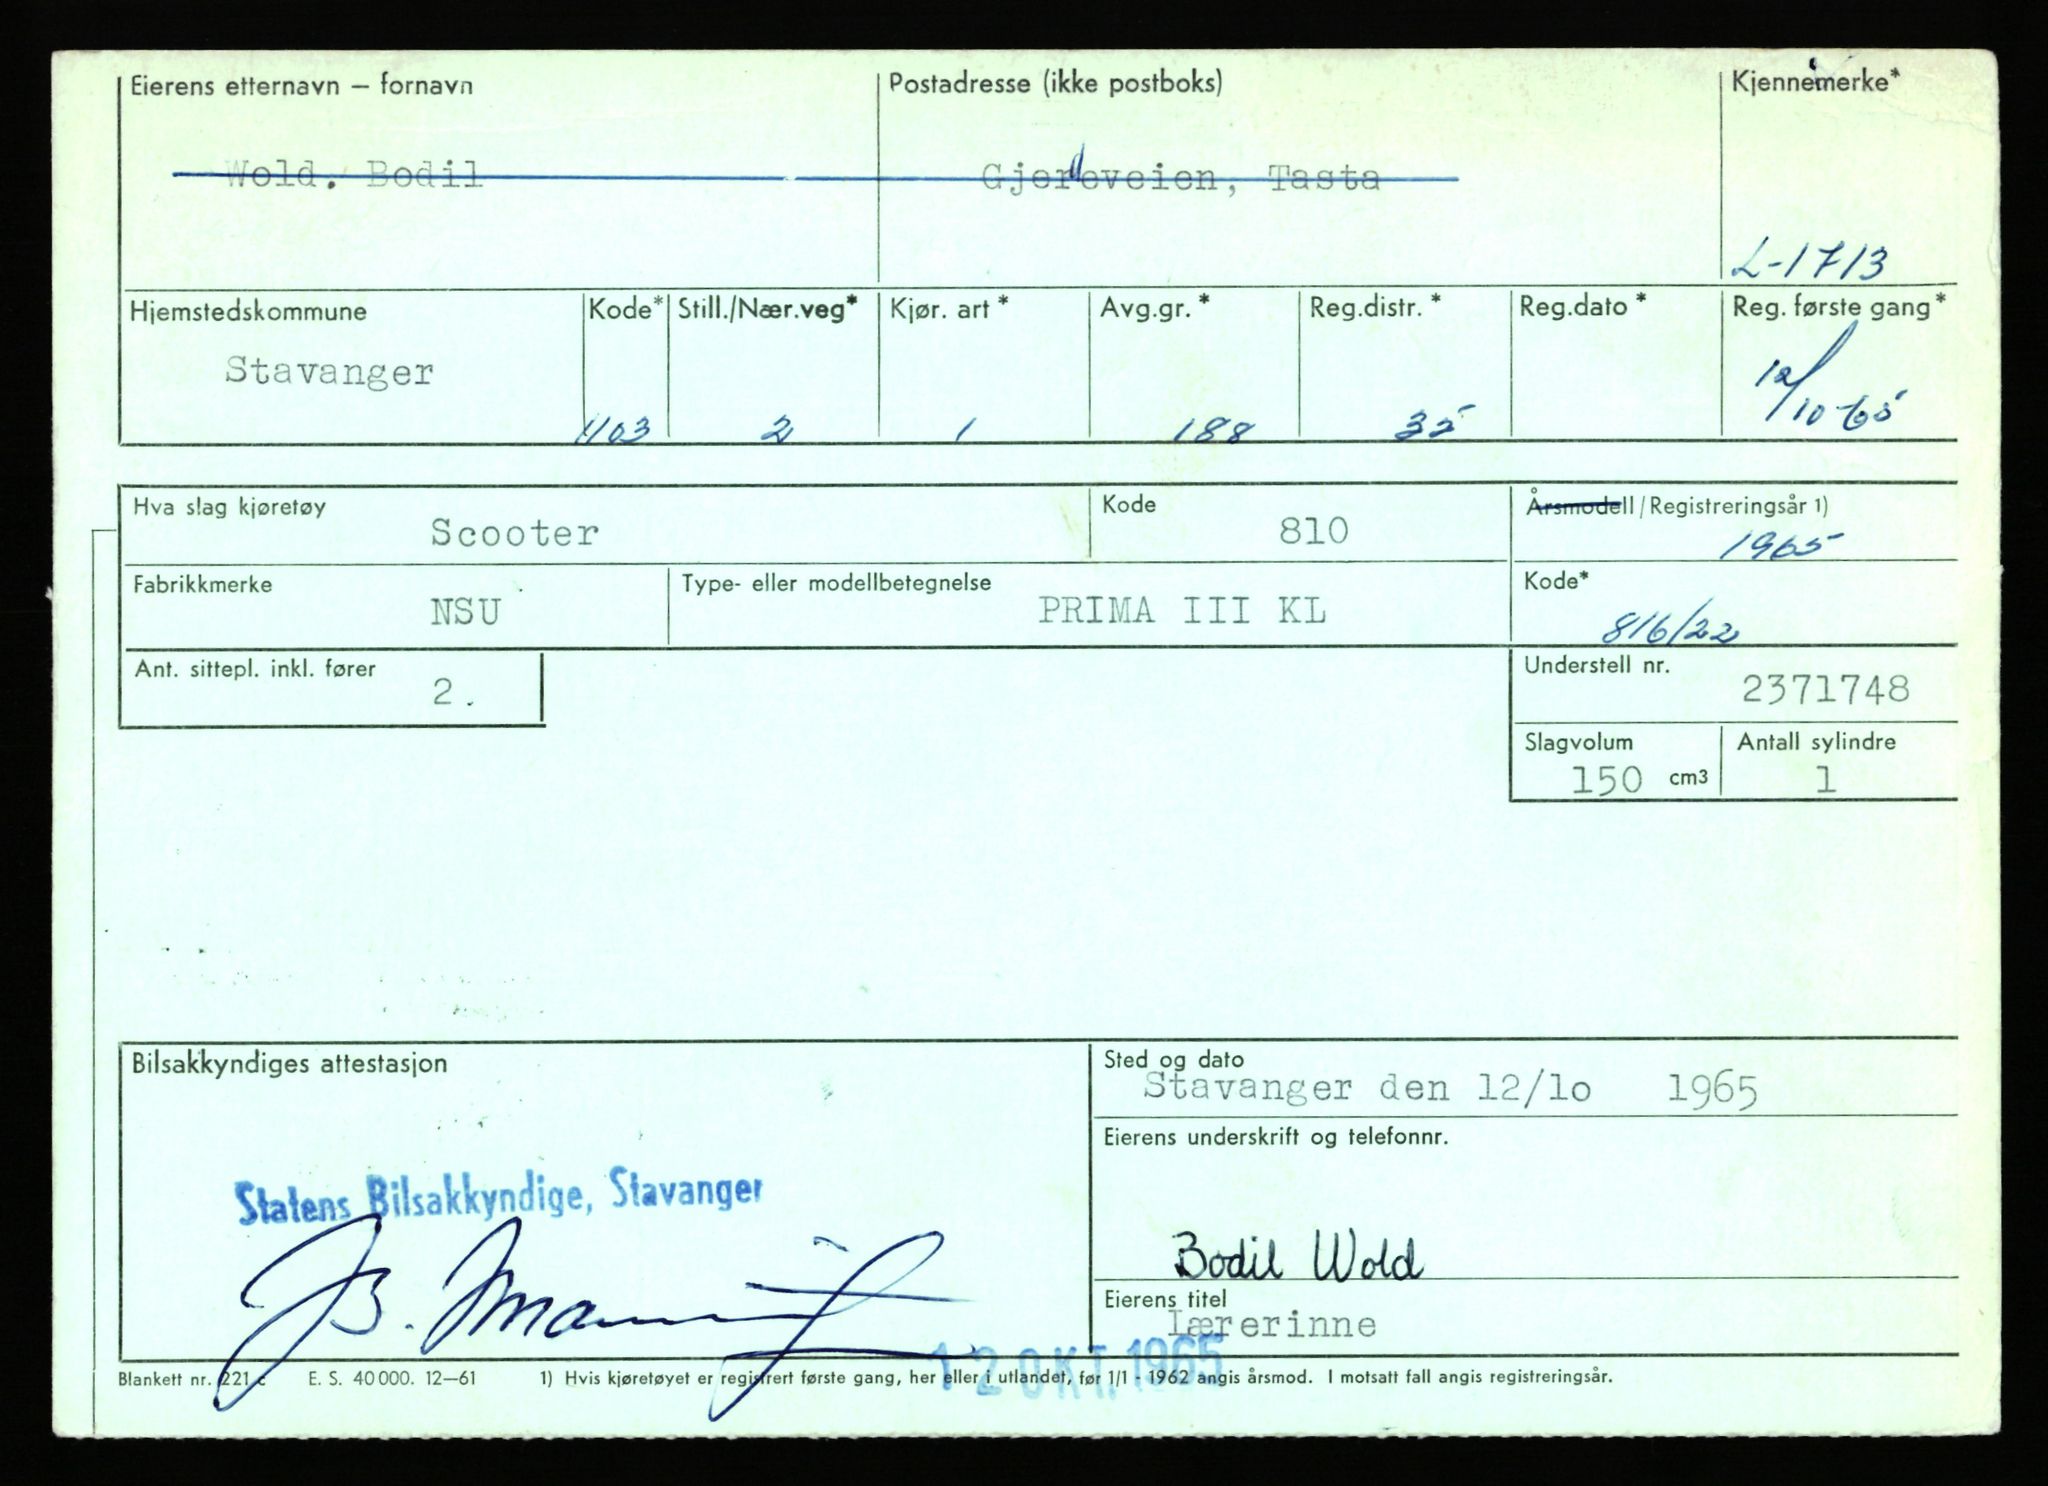 Eierens etternavn — fornavn Postadresse (ikke postboks) Kjennemerke*
Wold. Bodil Gjerdeveien, Tasta
L-1713
Hjemstedskommune Kode* Still./Nær.veg* Kjør. art* Avg.gr.* Reg.distr.* Reg.dato* Reg. første gang*
Stavanger 12/10-65
1103 2 1 188 35
Hva slag kjøretøy Scooter Kode 810 Årsmodell/Registreringsår 1)
1965
Fabrikkmerke NSU Type- eller modellbetegnelse PRIMA III KL Kode*
816/22
Ant. sittepl. inkl. fører 2. Understell nr. 2371748
Slagvolum Antall sylindre
150 cm3 1
Bilsakkyndiges attestasjon Sted og dato
Stavanger den 12/lo 1965
Eierens underskrift og telefonnr.
Statens Bilsakkyndige, Stavanger
Bodil Wold
Eierens titel
Lærerinne
12 OKT. 1965
Blankett nr. 221 c E. S. 40 000. 12—61 1) Hvis kjøretøyet er registrert første gang, her eller i utlandet, før 1/1 - 1962 angis årsmod. I motsatt fall angis registreringsår.